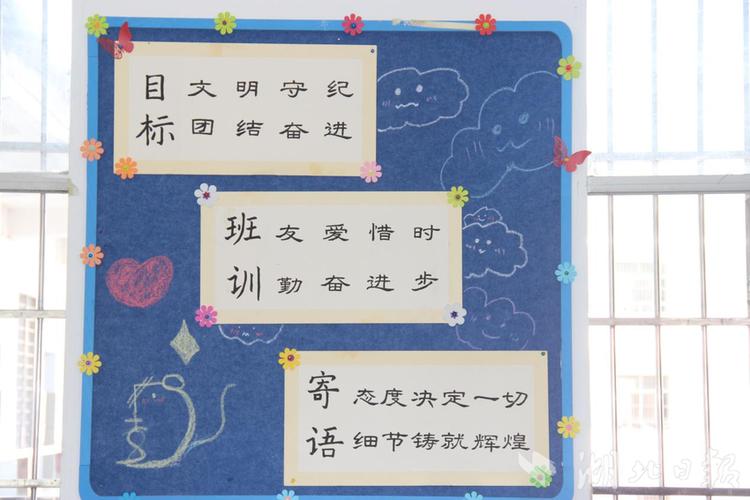 目标
文明守纪
团结奋进
班训
友爱惜时
勤奋进步
寄语
态度决定一切
细节铸就辉煌
湖北日报